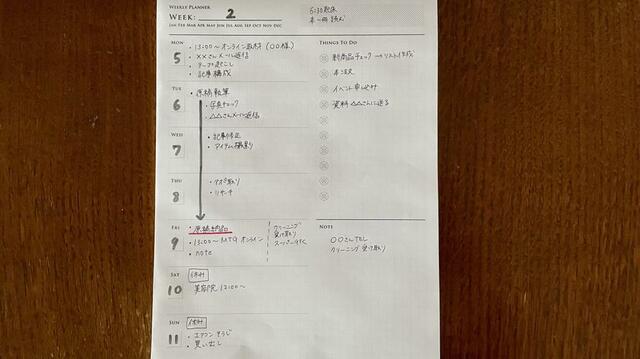 WEEKLY PLANNER
WEEK: 2
JAN FEB MAR APR MAY JUN JUL AUG SEP OCT NOV DEC
5:30起床
本一冊読む
MON
5
・13:00〜オンライン取材(〇〇様)
・××さんメール返信
・テープ起こし
・記事構成
TUE
6
・原稿執筆
・写真チェック
・△△さんメール返信
WED
7
・記事修正
・アイテム撮影
THU
8
・アポ取り
・リサーチ
FRI
9
・原稿納品
・13:00〜MTG オンライン
・note
クリーニング
受け取り
SAT
10
休み
美容院 12:00〜
SUN
11
休み
・エアコンそうじ
・買い出し
THINGS TO DO
新商品チェック →リスト作成
本注文
イベント申し込み
資料 △△さんに送る
NOTE
〇〇さんTEL
クリーニング受け取り